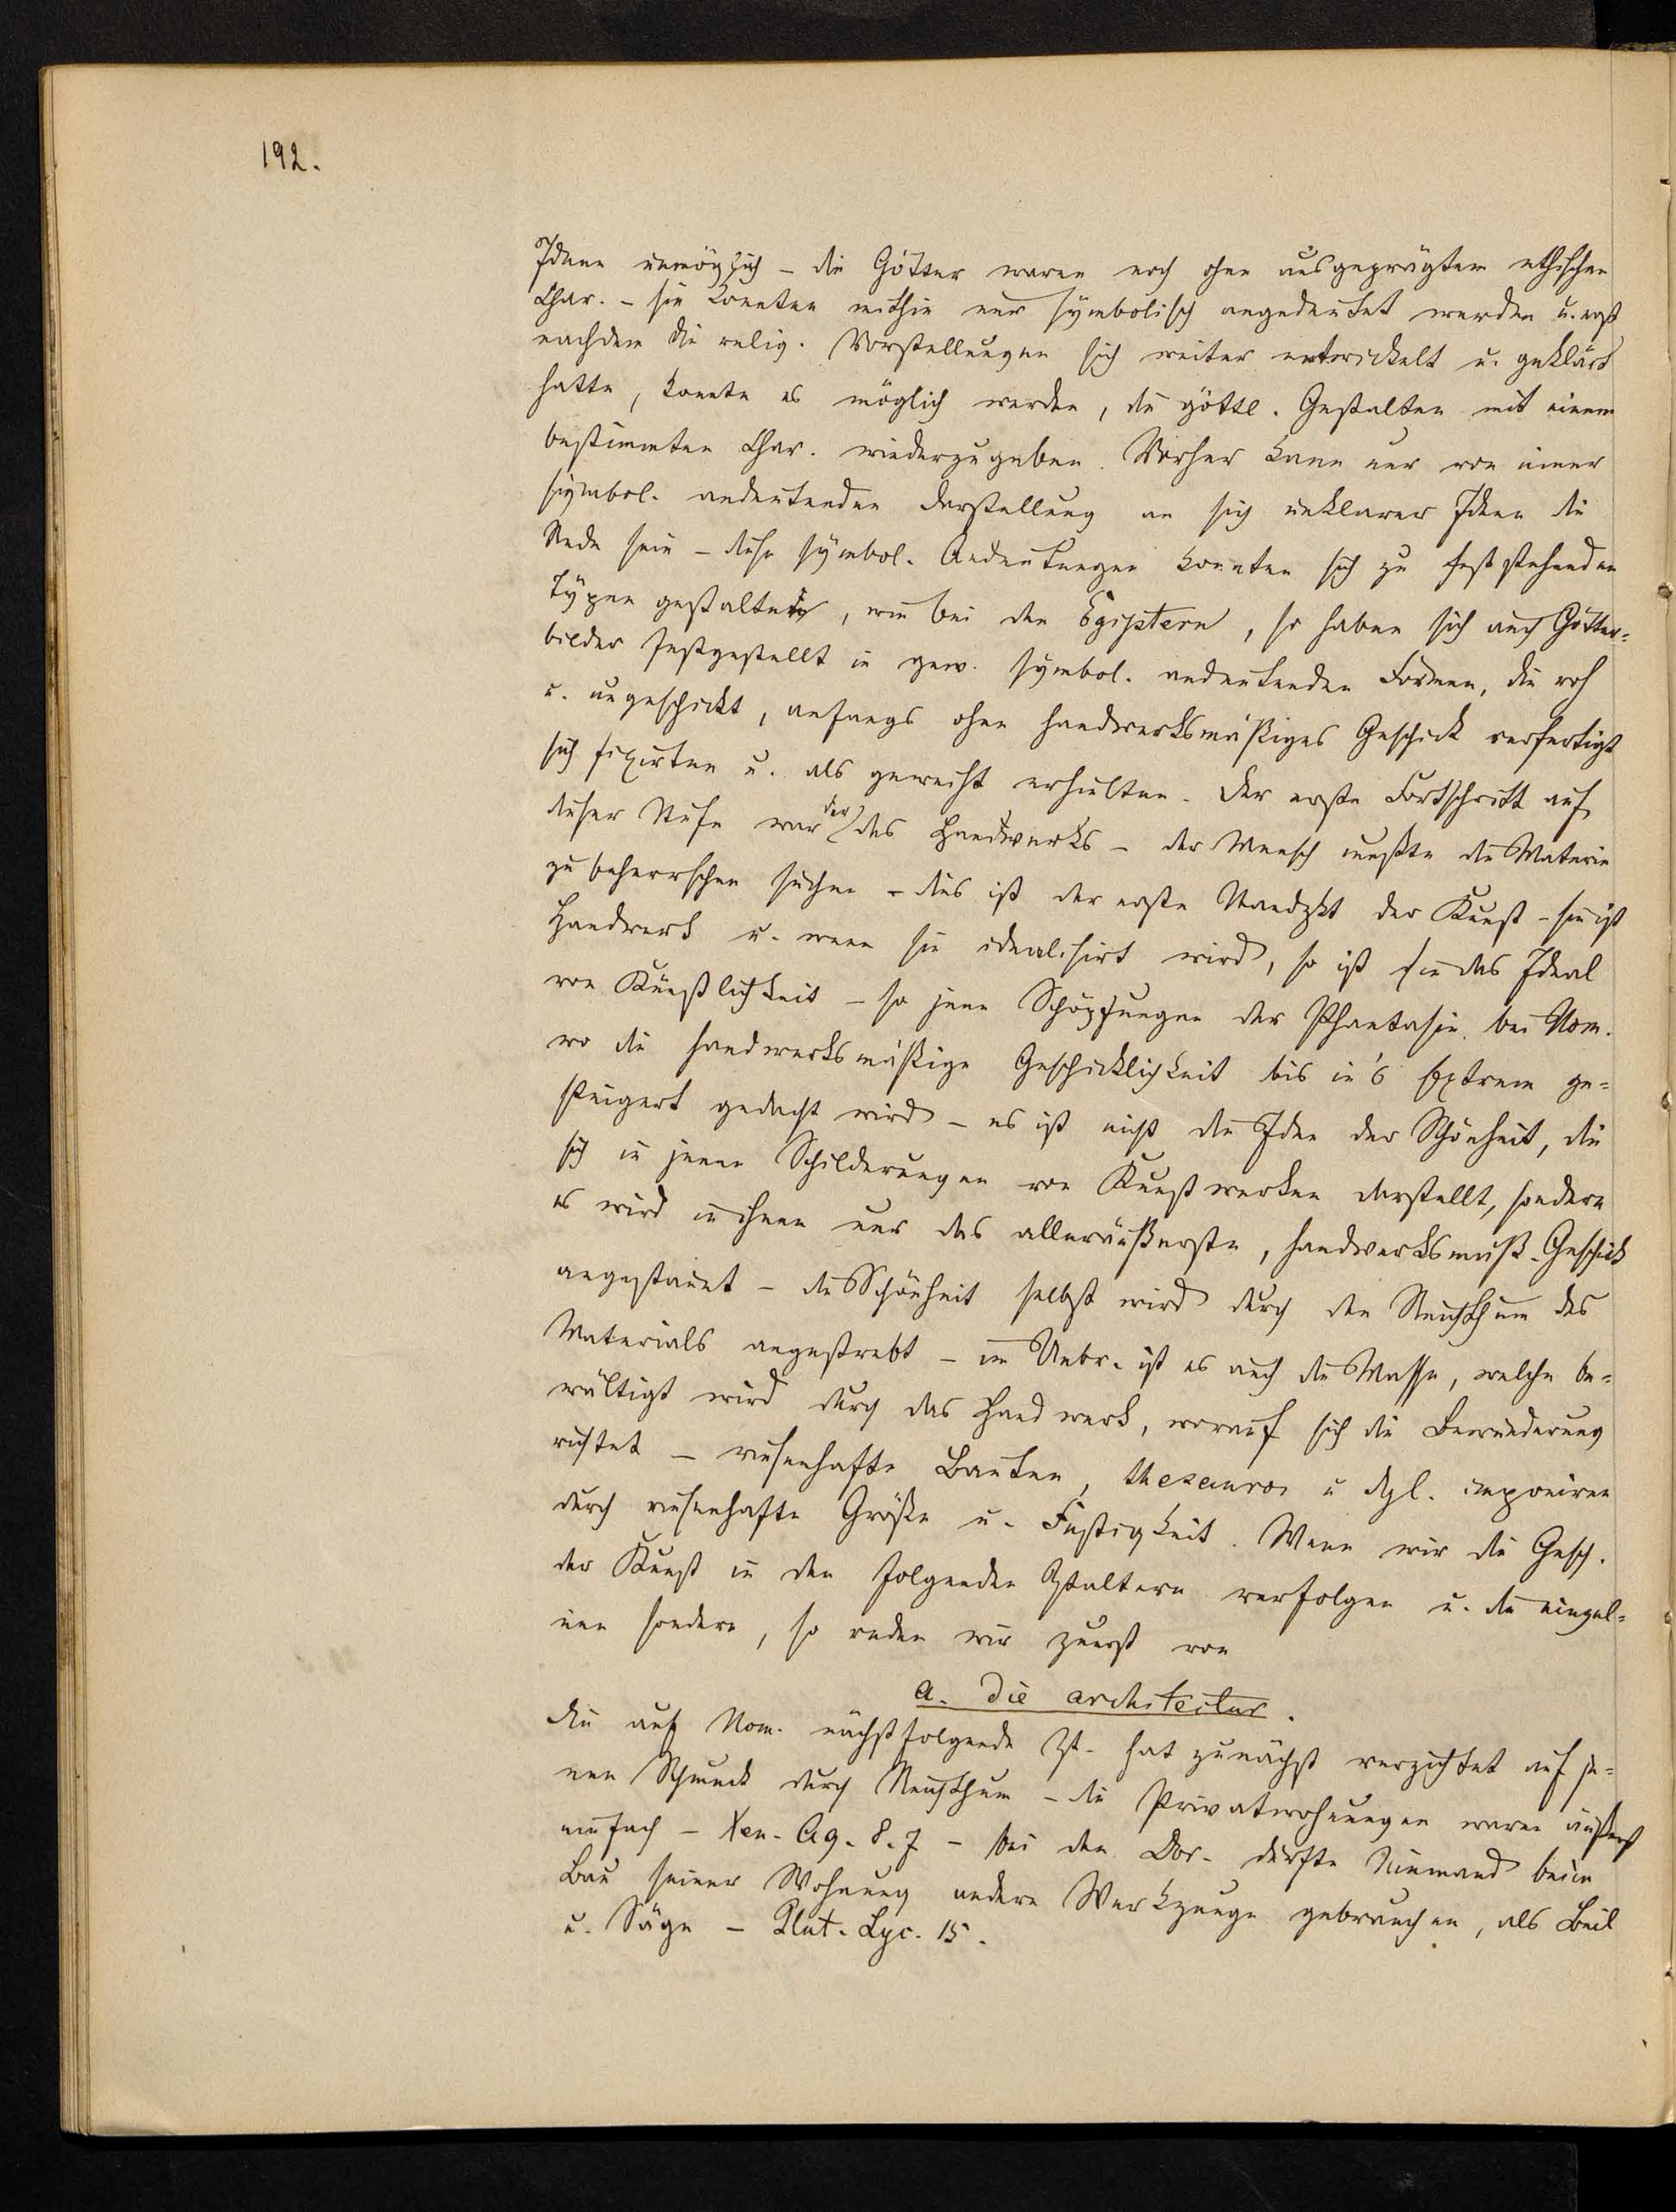 192.
Ideen unmöglich – die Götter waren noch ohne ausgeprägten ethischen
Char. – sie konnten mithin nur symbolisch angedeutet werden u. erst
nachdem die relig. Vorstellungen sich weiter entwickelt u. geklärt
hatte, konnte es möglich werden, die göttl. Gestalten mit einem
bestimmten Char. wiederzugeben. Vorher kann nur von einer
symbol. andeutenden Darstellung an sich unklarer Ideen die
Rede sein – diese symbol. Andeutungen konnten sich zu feststehenden
Typen gestalten, wie bei den Egiptern, so haben sich auch Götter=
bilder festgestellt in gew. symbol. andeutenden Formen, die roh
u. ungeschickt, anfangs ohne handwerksmäßiges Geschick verfertigt
sich fixirten u. als geweiht erhielten. Der erste Fortschritt auf
dieser Stufe war der des Handwerks – der Mensch mußte die Materie
zu beherrschen suchen – dies ist der erste Standpkt der Kunst – sie ist
Handwerk u. wenn sie idealisirt wird, so ist sie das Ideal
von Künstlichkeit – so jene Schöpfungen der Phantasie bei Hom.
wo die handwerksmäßige Geschicklichkeit bis in's Extrem ge=
steigert gedacht wird – es ist nicht die Idee der Schönheit, die
sich in jenen Schilderungen von Kunstwerken darstellt, sondern
es wird in ihnen nur das alleräußerste, handwerksmäß. Geschick
angestaunt – die Schönheit selbst wird durch den Reichthum des
Materials angestrebt – im Uebr. ist es auch die Masse, welche be=
wältigt wird durch das Handwerk, worauf sich die Bewunderung
richtet – riesenhafte Bauten, thesauroi u dgl. imponiren
durch riesenhafte Größe u. Festigkeit. Wenn wir die Gesch.
der Kunst in den folgenden Ztaltern verfolgen u. die einzel=
nen sondern, so reden wir zuerst von
a. Die architectur.
Die auf Hom. nächstfolgende Zt. hat zunächst verzichtet auf je=
nen Schmuck durch Reichthum – die Privatwohnungen waren äußerst
einfach – Xen. Ag. 8. 7 – bei den Dor. durfte Niemand beim
Bau seiner Wohnung andere Werkzeuge gebrauchen, als Beil
u. Säge – Plut. Lyc. 15.